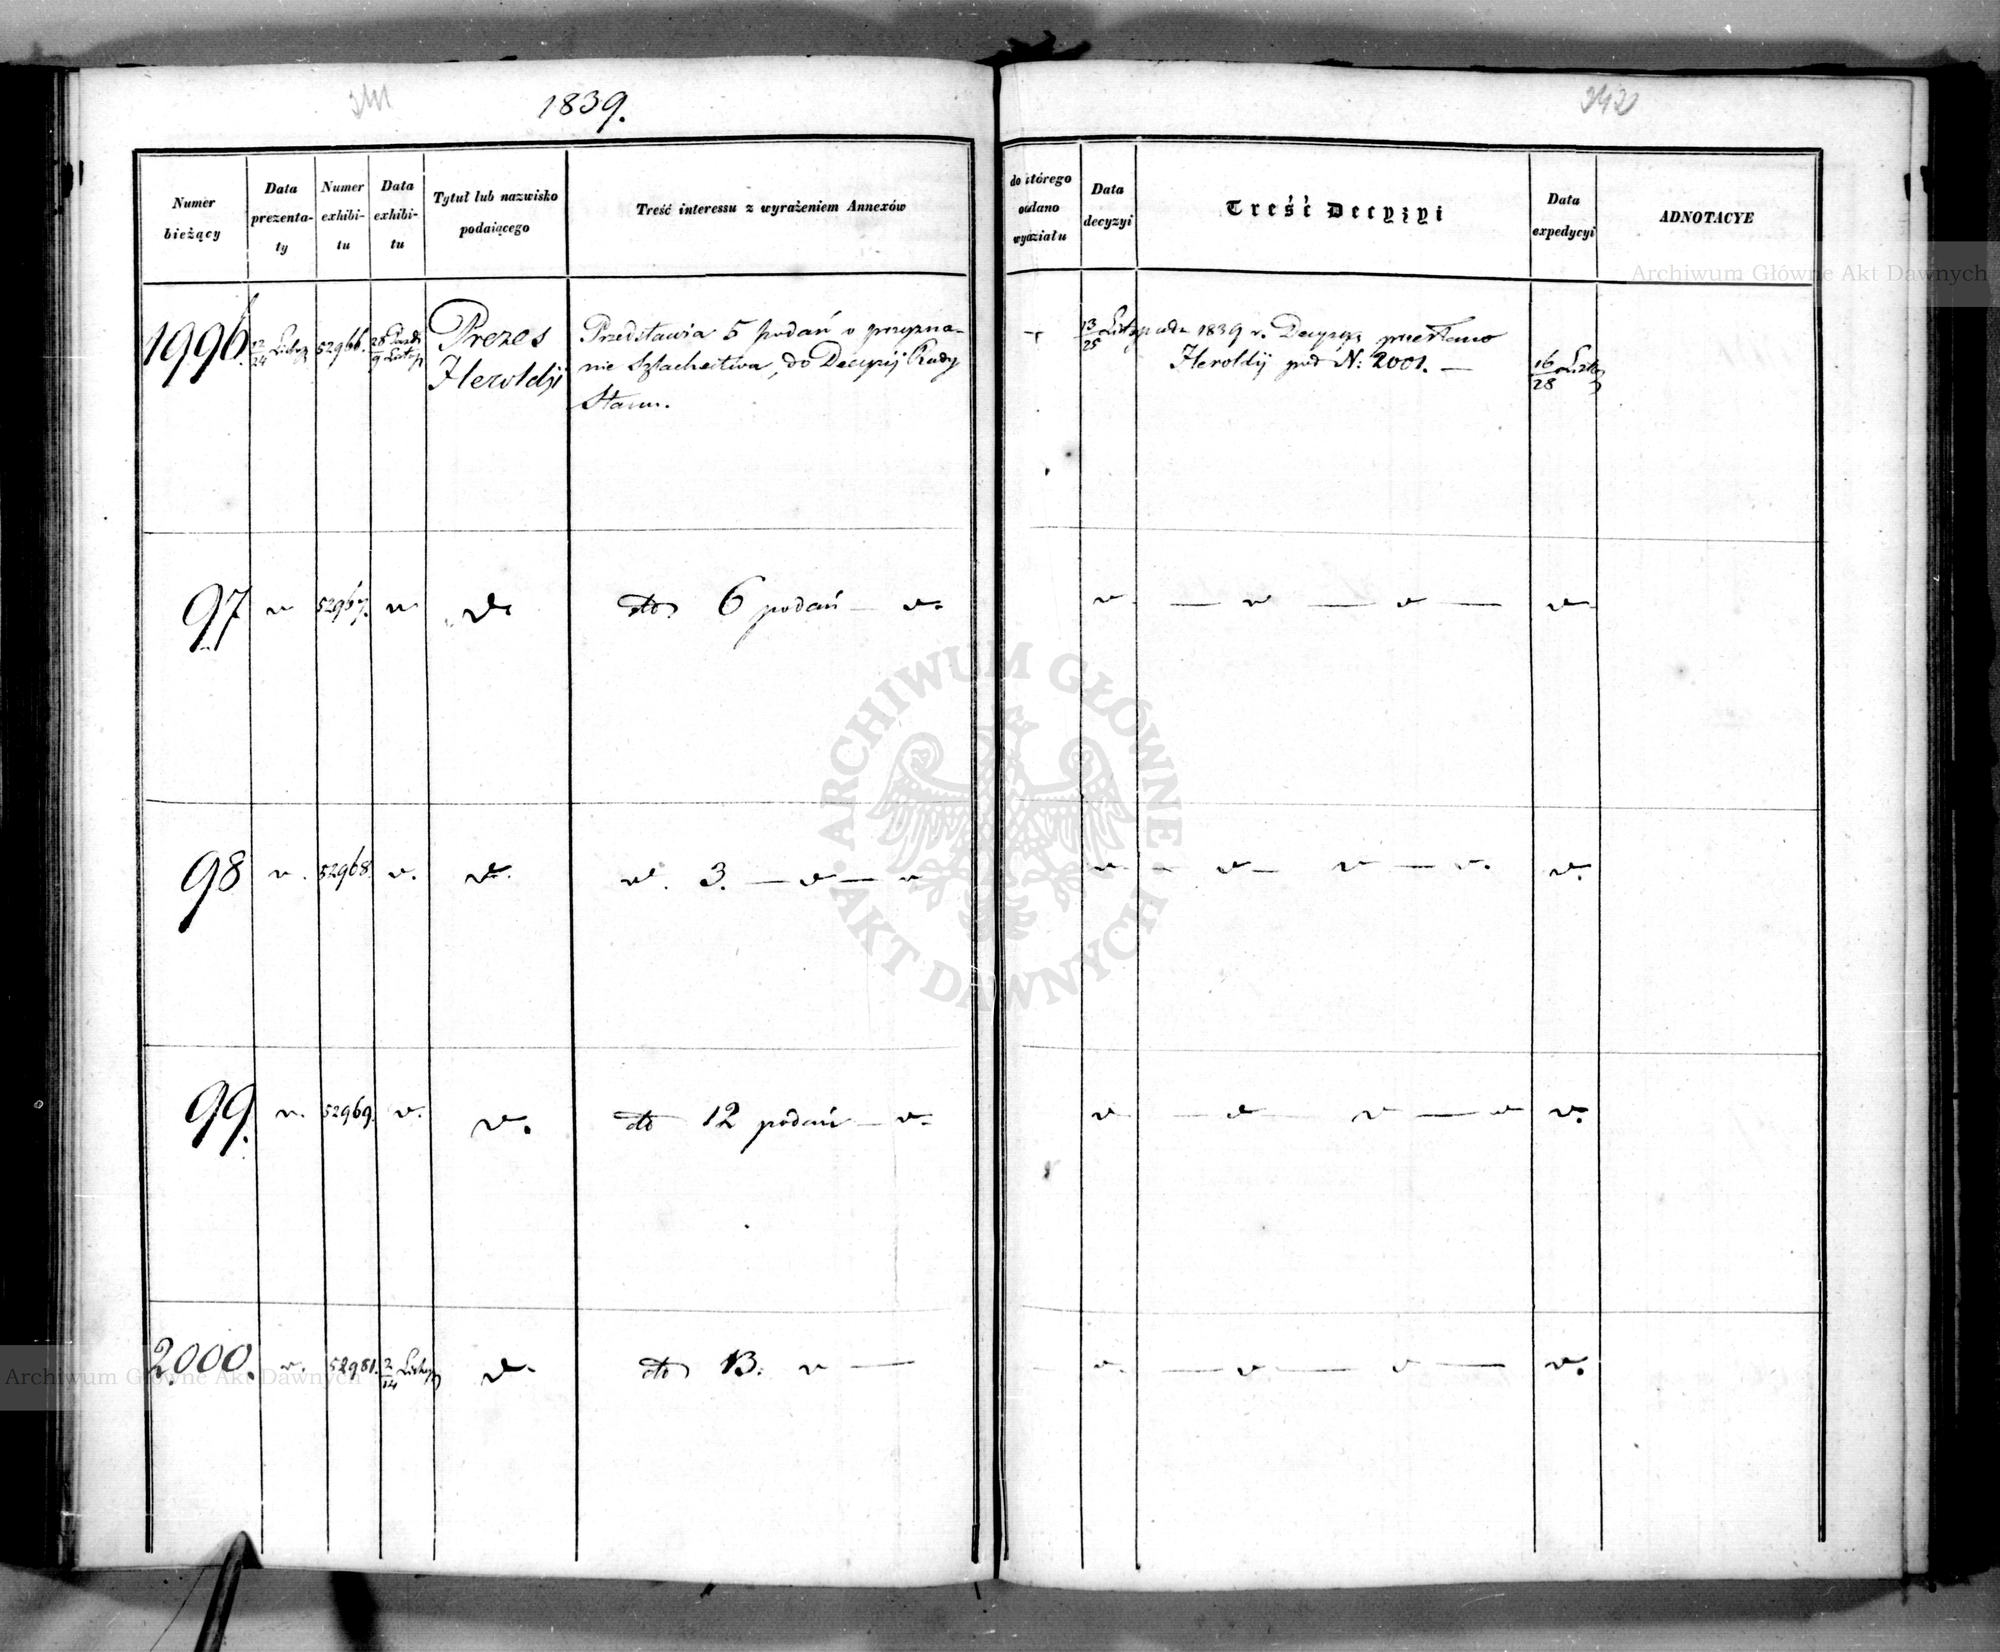 341
1839.
342
Numer
bieżący
Data
prezenta-
ty
Numer
exhibi-
tu
Data
exhibi-
tu
Tytuł lub nazwisko
podaiącego
Treść interessu z wyrażeniem Annexów
do którego
oddano
wydziału
Data
decyzyi
Treść Decyzyi
Data
expedycyi
ADNOTACYE
1996.
12/24 Listop
52966.
28 Paźdz
9 Listop
Prezes
Heroldji
Przedstawia 5 podań o przyzna-
nie Szlachectwa, do Decyzyi Rady
Stanu.
13/25 Listopada 1839 r. Decyzyę przesłano
Heroldij pod N: 2001. —
16/28 Listop
97
52967.
dto 6 podań —
98
52968.
3. —
99.
52969.
dto 12 podań —
2000.
52981.
2/14 Listop
dto 13. —
ARCHIWUM GŁÓWNE
AKT DAWNYCH
Archiwum Główne Akt Dawnych
Archiwum Główne Akt Dawnych